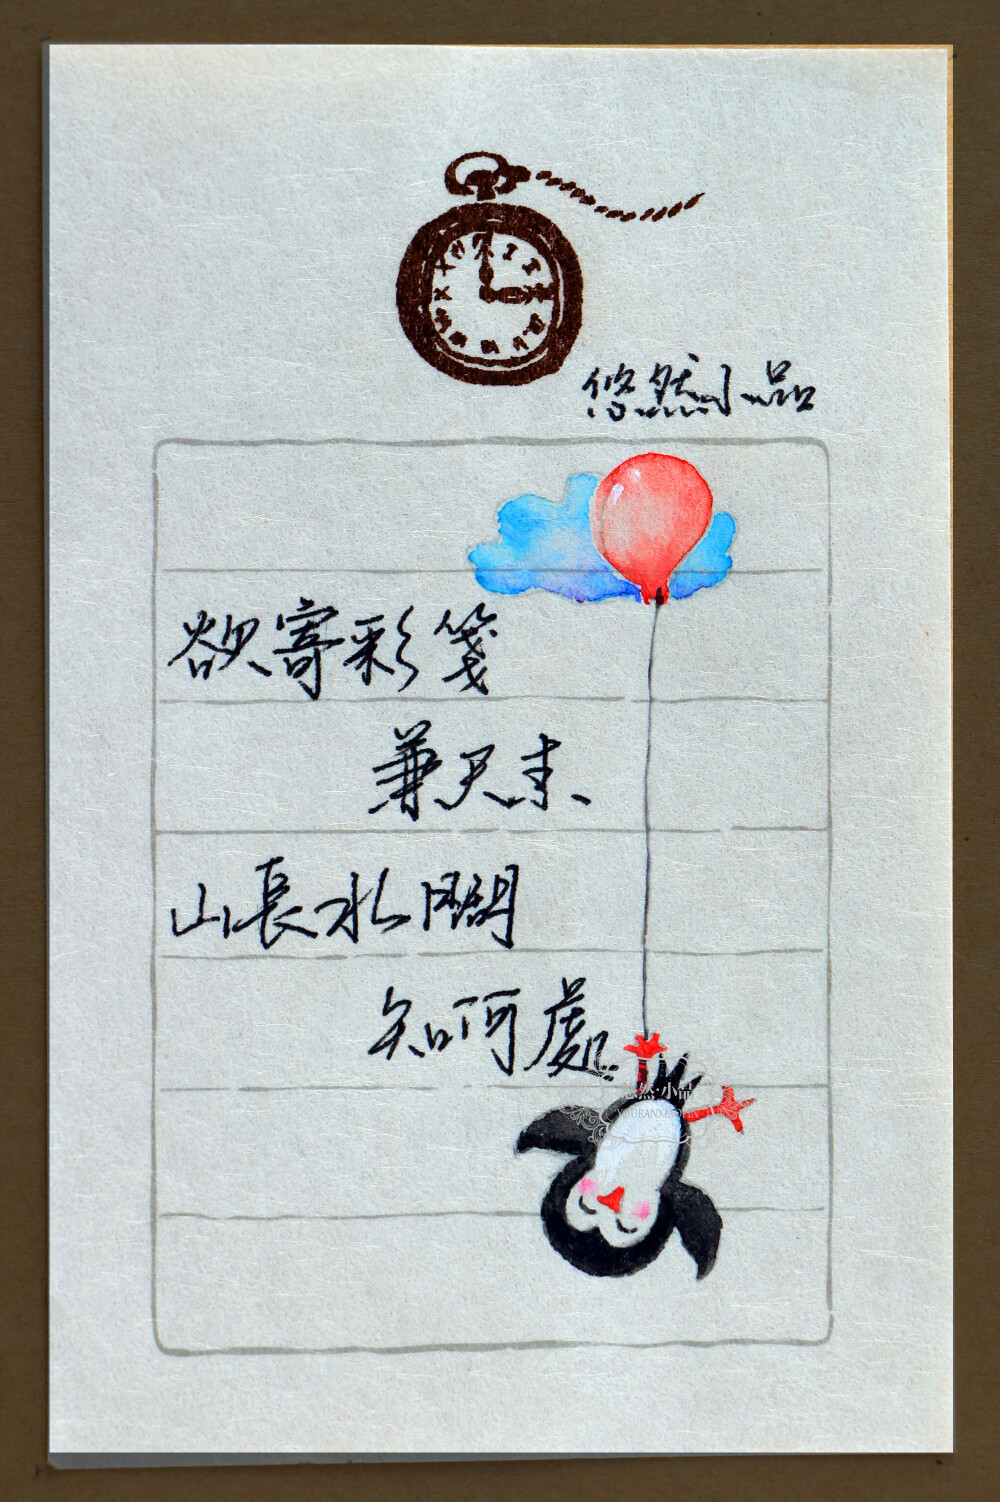 悠然小品
欲寄彩箋
兼尺素
山長水闊
知何處
悠然·小品
YOURANXIAOPIN